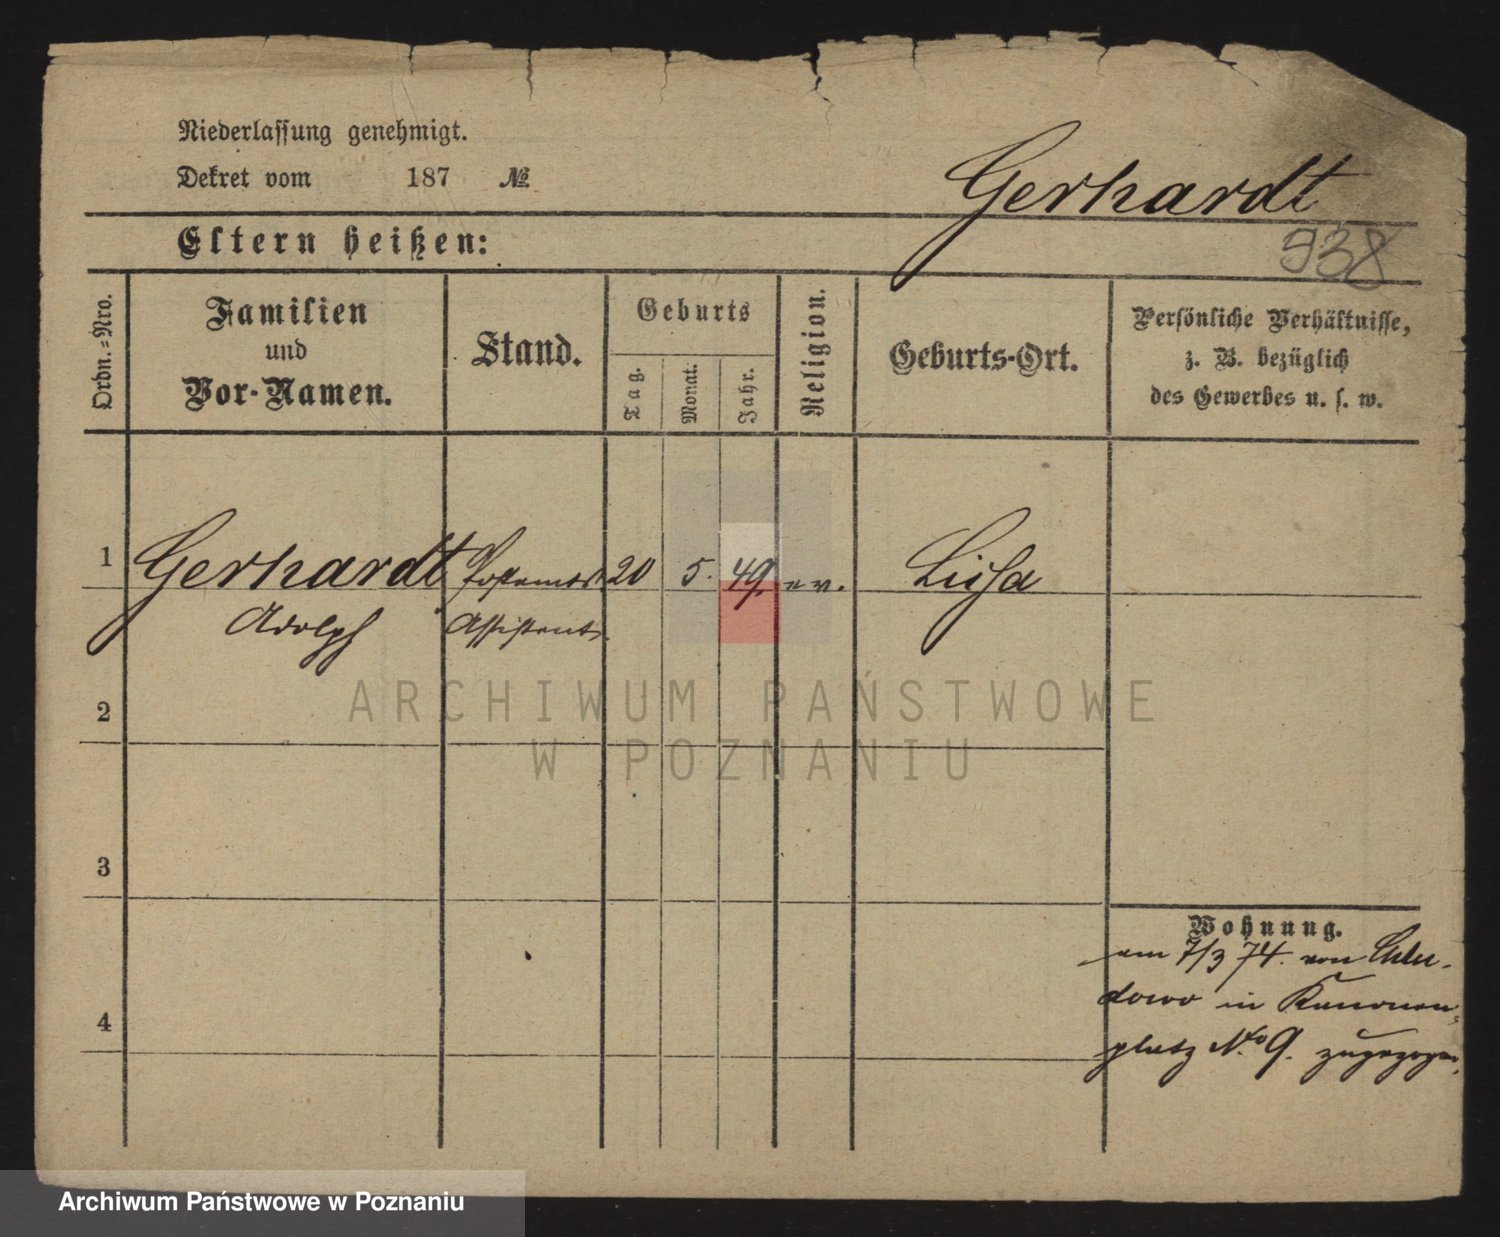 Niederlassung genehmigt.
Dekret vom 187 №
Gerhardt
Eltern heißen:
938
Ordn.=Nro.
Familien
und
Vor-Namen.
Stand.
Geburts
Tag.
Monat.
Jahr.
Religion.
Geburts-Ort.
Persönliche Verhältnisse,
z. B. bezüglich
des Gewerbes u. s. w.
1 Gerhardt Postamts 20 5. 49. ev.
Adolph Assistent
2
ARCHIWUM PAŃSTWOWE
W POZNANIU
3
Wohnung.
am 7/3 74. von
in Kanonen-
platz No 9. zugezogen.
4
Archiwum Państwowe w Poznaniu